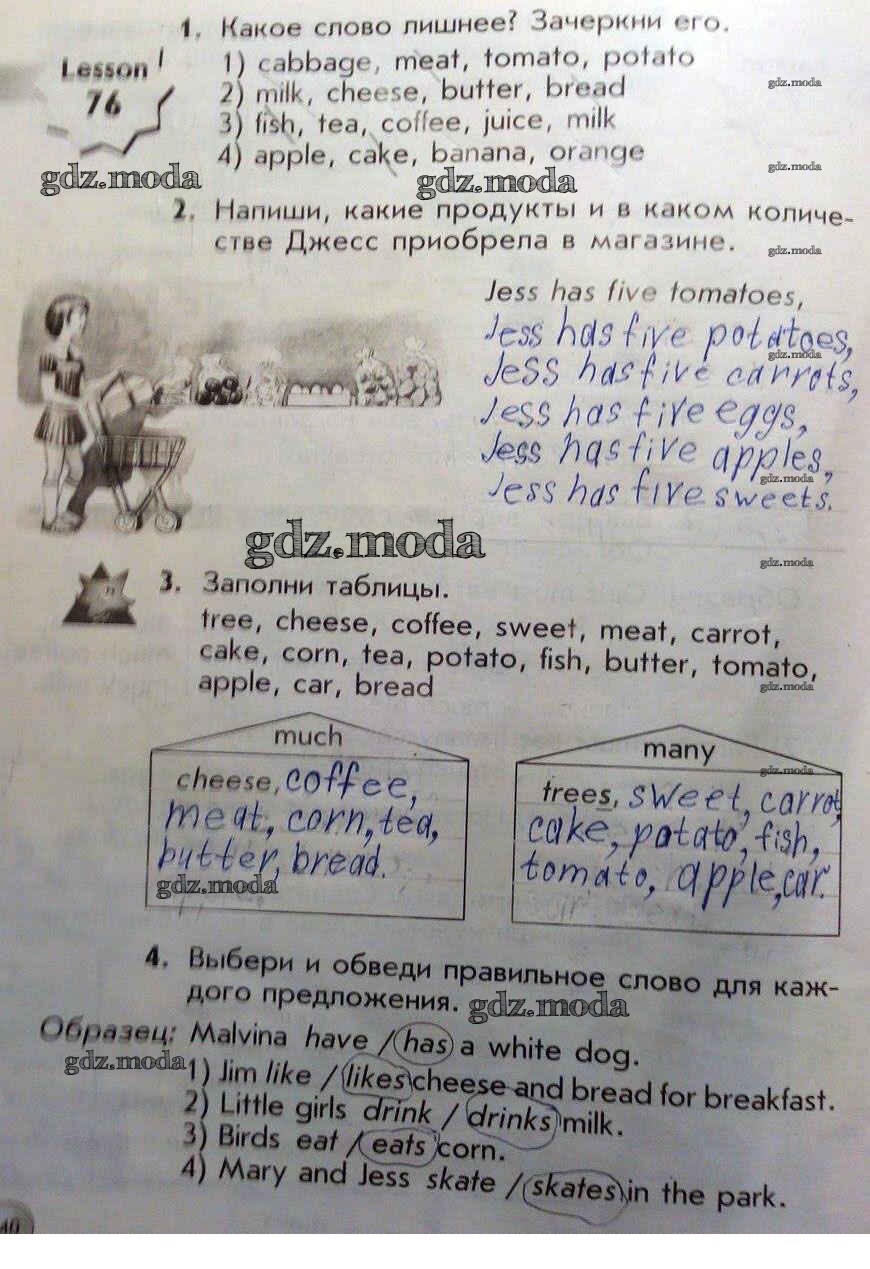 1. Какое слово лишнее? Зачеркни его.
Lesson
76
1) cabbage, meat, tomato, potato
gdz.moda
2) milk, cheese, butter, bread
3) fish, tea, coffee, juice, milk
4) apple, cake, banana, orange
gdz.moda
gdz.moda
gdz.moda
2. Напиши, какие продукты и в каком количе-
стве Джесс приобрела в магазине.
gdz.moda
Jess has five tomatoes,
Jess has five potatoes,
gdz.moda
Jess has five carrots,
Jess has five eggs,
Jess has five apples,
gdz.moda
Jess has five sweets.
gdz.moda
gdz.moda
3. Заполни таблицы.
tree, cheese, coffee, sweet, meat, carrot,
cake, corn, tea, potato, fish, butter, tomato,
apple, car, bread
gdz.moda
much
cheese, coffee,
meat, corn, tea,
butter, bread.
gdz.moda
many
gdz.moda
trees, sweet, carrot,
cake, potato, fish,
tomato, apple, car.
4. Выбери и обведи правильное слово для каж-
дого предложения.
gdz.moda
Образец: Malvina have / has a white dog.
gdz.moda
1) Jim like / likes cheese and bread for breakfast.
2) Little girls drink / drinks milk.
3) Birds eat / eats corn.
4) Mary and Jess skate / skates in the park.
40